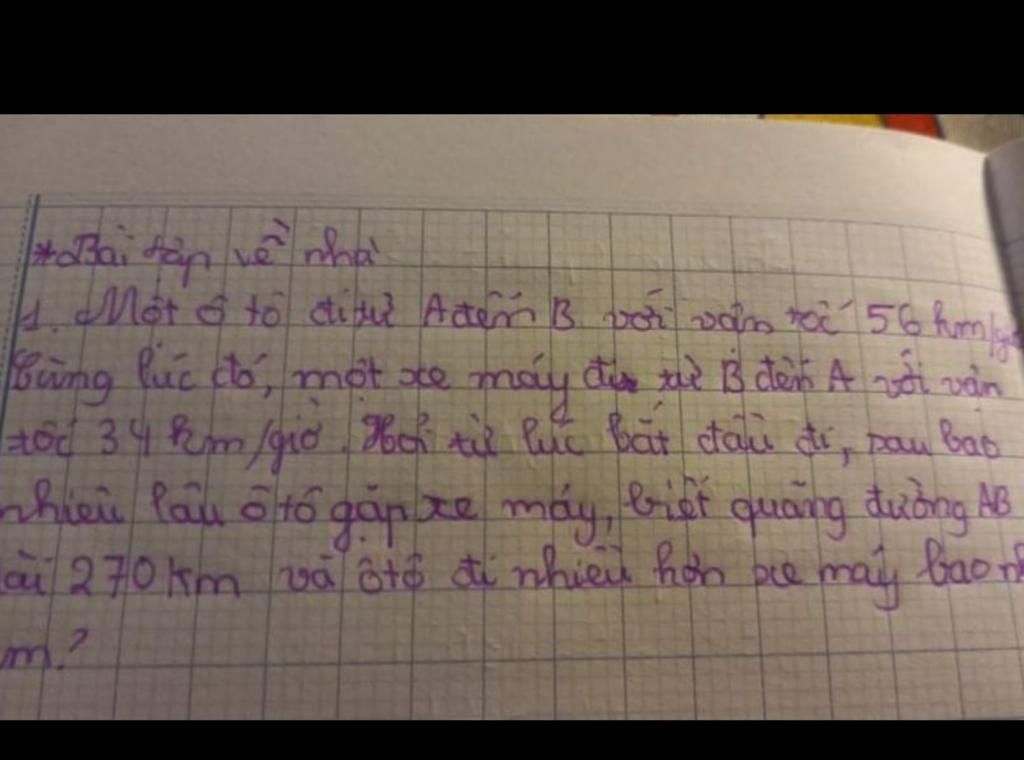 *Bài tập về nhà
1. Một ô tô đi từ A đến B với vận tốc 56 km/giờ
Cùng lúc đó, một xe máy đi từ B đến A với vận
tốc 34 km/giờ. Hỏi từ lúc bắt đầu đi, sau bao
nhiêu lâu ô tô gặp xe máy, biết quãng đường AB
ài 270 km và ô tô đi nhiều hơn xe máy bao nh
m?